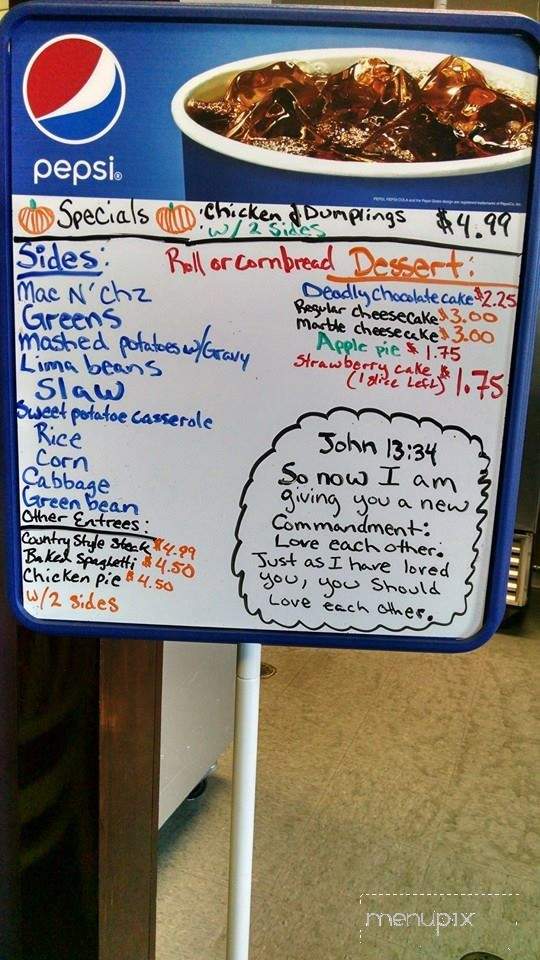 pepsi®
Specials : Chicken & Dumplings $4.99
: w/ 2 sides
Roll or cornbread
Sides:
Mac N' chz
Greens
Mashed potatoes w/Gravy
Lima beans
Slaw
Sweet potatoe Casserole
Rice
Corn
Cabbage
Green bean
Other Entrees:
Country Style Steak $4.99
Baked Spaghetti $4.50
Chicken pie $4.50
w/2 sides
Dessert:
Deadly Chocolate cake $2.25
Regular cheesecake $3.00
Marble cheesecake $3.00
Apple pie $1.75
Strawberry cake $1.75
(1 slice Left)
John 13:34
So now I am
giving you a new
Commandment:
Love each other.
Just as I have loved
you, you should
Love each other.
menupix